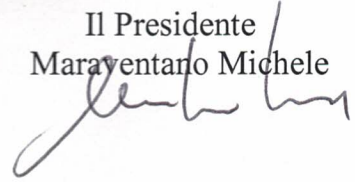 Il Presidente
Maraventano Michele